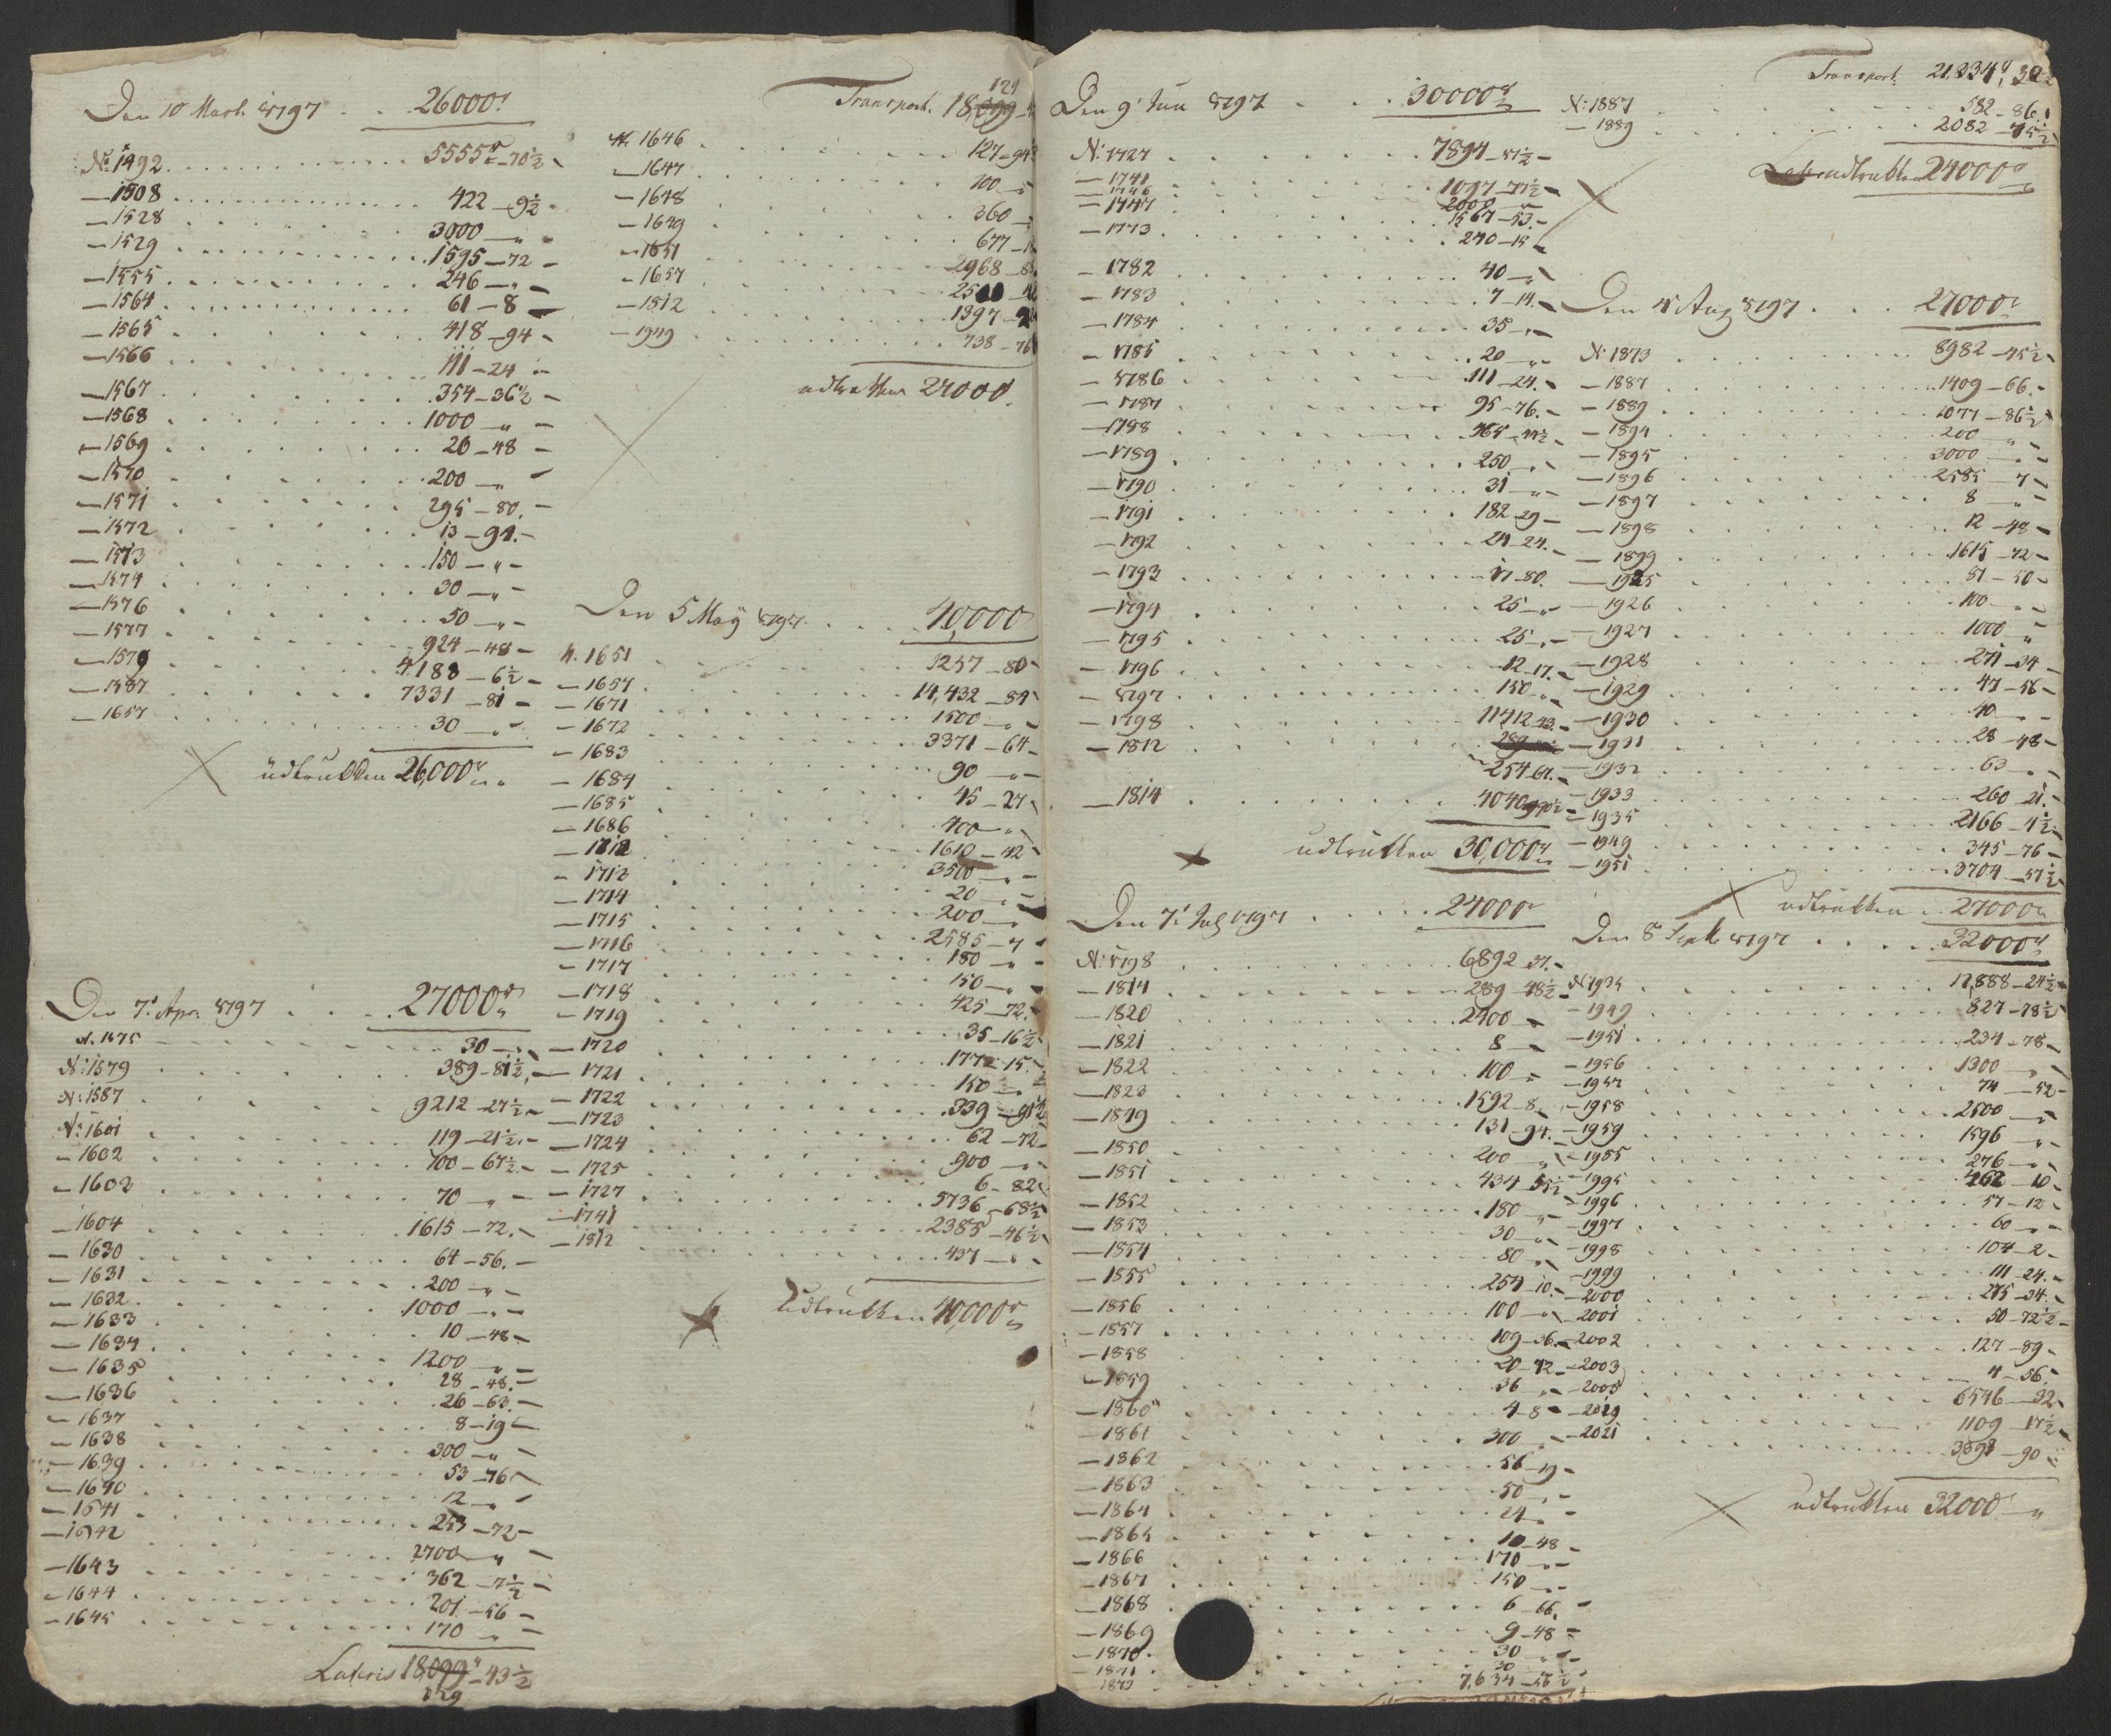 Den 10 Mart. 1797 . . 26000r
No: 1492 . . . 5555r - 70½ -
- 1508 . . . 422 - 9½ -
- 1528 . . . 3000 - " -
- 1529 . . . 1595 - 72 -
- 1555 . . . 246 - " -
- 1564 . . . 61 - 8 -
- 1565 . . . 418 - 94 -
- 1566 . . . 111 - 24 -
- 1567 . . . 354 - 36½ -
- 1568 . . . 1000 - " -
- 1569 . . . 20 - 48 -
- 1570 . . . 200 - " -
- 1571 . . . 295 - 80. -
- 1572 . . . 13 - 94. -
- 1573 . . . 150 - " -
- 1574 . . . 30 - " -
- 1576 . . . 50 - " -
- 1577 . . . 924 - 48 -
- 1579 . . . 4188 - 6½ -
- 1587 . . . 7331 - 81 -
- 1657 . . . 30 - " -
udtrukken 26,000r " "
Den 7' Apr. 1797 . . . 27000r
N. 1575 . . . 30 - " -
No: 1579 . . . 389 - 81½ -
No: 1587 . . . 9212 - 27½ -
No: 1601 . . . 119 - 21½ -
- 1602 . . . 700 - 67½ -
- 1603 . . . 70 - " -
- 1604 . . . 1615 - 72. -
- 1630 . . . 64 - 56. -
- 1631 . . . 200 - " -
- 1632 . . . 1000 - " -
- 1633 . . . 10 - 48 -
- 1634 . . . 1200 - " -
- 1635 . . . 28 - 48. -
- 1636 . . . 26 - 63. -
- 1637 . . . 8 - 19 -
- 1638 . . . 300 - " -
- 1639 . . . 53 - 76 -
- 1640 . . . 12 - " -
- 1641 . . . 253 - 72 -
- 1642 . . . 2700 - " -
- 1643 . . . 362 - 7½ -
- 1644 . . . 201 - 56 -
- 1645 . . . 170 - " -
Lateris 18099r - 43½
129
129
Transport. 18,099
N. 1646 . . . 127 - 94
- 1647 . . . 100 - "
- 1648 . . . 360 -
- 1649 . . . 677 -
- 1651 . . . 2968 -
- 1657 . . .
- 1812 . . . 1397 -
- 1949 . . . 738 - 76
udtrukken 27000.
Den 5 May 1797 . . . 40,000r
N. 1651 . . . 1257 - 80 -
- 1657 . . . 14,432 - 84
- 1671 . . . 1500 - " -
- 1672 . . . 3371 - 64 -
- 1683 . . . 90 - " -
- 1684 . . . 45 - 27
- 1685 . . . 400 - "
- 1686 . . . 1610 - 42 -
- 1712 . . . 3500 - " -
- 1713 . . . 20 - " -
- 1714 . . . 200 - "
- 1715 . . . 2585 - 7 -
- 1716 . . . 180 - " -
- 1717 . . . 150 - " -
- 1718 . . . 425 - 72. -
- 1719 . . . 35 - 16½
- 1720 . . . 177 - 15.
- 1721 . . . 150 - "
- 1722 . . . 339 - 91½
- 1723 . . . 62 - 72 -
- 1724 . . . 900 - " -
- 1725 . . . 6 - 82
- 1727 . . . 5736 - 68½
- 1741 . . . 2385 - 46½
- 1812 . . . 437 - " -
Udtrukken 40,000r "
Den 9' Jun 1797 . . . 30000r
No: 1727 . . . 7894 - 51½ -
- 1741 . . . 1077 - 77½ -
- 1746 . . . 2000 - "
- 1747 . . . 1567 - 53. -
- 1773 . . . 240 - 15 -
- 1782 . . . 40 - "
- 1783 . . . 7 - 14. -
- 1784 . . . 35 - " -
- 1785 . . . 20 - "
- 1786 . . . 111 - 24. -
- 1787 . . . 95 - 76. -
- 1788 . . . 765 - 44½ -
- 1789 . . . 250 - " -
- 1790 . . . 31 - " -
- 1791 . . . 182 - 29 -
- 1792 . . . 24 - 24. -
- 1793 . . . 17 - 80.
- 1794 . . . 25 - " -
- 1795 . . . 25 - " -
- 1796 . . . 12 - 17. -
- 1797 . . . 150 - "
- 1798 . . . 11412 - 23. -
- 1812 . . . 254 - 61. -
- 1814 . . . 4040 - 90½ -
udtrukken 30,000r
Den 7' Jul 1797 . . . 24000r
No: 1798 . . . 6892 - 37. -
- 1814 . . . 289 - 48½ -
- 1820 . . . 2400 - "
- 1821 . . . 8 - "
- 1822 . . . 100 - "
- 1823 . . . 1592 - 8
- 1849 . . . 131 - 94. -
- 1850 . . . 200 - "
- 1851 . . . 434 - 55½
- 1852 . . . 180 - "
- 1853 . . . 30 - "
- 1854 . . . 80 - "
- 1855 . . . 254 - 10. -
- 1856 . . . 100 - "
- 1857 . . . 109 - 36. -
- 1858 . . . 20 - 72 -
- 1859 . . . 36 - " -
- 1860 . . . 4 - 8 -
- 1861 . . . 300 - " -
- 1862 . . . 56 - 19 -
- 1863 . . . 50 - " -
- 1864 . . . 24 - " -
- 1865 . . . 10 - 48 -
- 1866 . . . 170 - " -
- 1867 . . . 150 - " -
- 1868 . . . 6 - 66. -
- 1869 . . . 9 - 48 -
- 1870 . . . 30 - " -
- 1871 . . . 30 - "
- 1873 . . . 7,634 - 56½ -
Transport: 21,334r 30½
No: 1887 . . . 582 - 86.
- 1889 . . . 2082 - 75½
udtrukken 24000r
Den 4' Aug 1797 . . . 27000r
No: 1873 . . . 8982 - 45½ -
- 1887 . . . 1409 - 66. -
- 1889 . . . 1077 - 86½
- 1894 . . . 200 - " -
- 1895 . . . 3000 - " -
- 1896 . . . 2585 - 7 -
- 1897 . . . 8 - " -
- 1898 . . . 12 - 48 -
- 1899 . . . 1615 - 72 -
- 1925 . . . 51 - 50 -
- 1926 . . . 100 - " -
- 1927 . . . 1000 - "
- 1928 . . . 271 - 34 -
- 1929 . . . 47 - 56 -
- 1930 . . . 40 - " -
- 1931 . . . 28 - 48 -
- 1932 . . . 63 - " -
- 1933 . . . 260 - 21. -
- 1935 . . . 2166 - 4½
- 1949 . . . 345 - 76 -
- 1951 . . . 3704 - 57½
udtrukken . . 27000r
Den 8' Septb 1797 . . . 32000r
No 1935 . . . 12,888 - 24½ -
- 1949 . . . 827 - 78½
- 1951 . . . 234 - 78 -
- 1956 . . . 1300 - "
- 1957 . . . 74 - 52 -
- 1958 . . . 2500 - "
- 1959 . . . 1596 - " -
- 1985 . . . 276 - " -
- 1995 . . . 462 - 10 -
- 1996 . . . 57 - 12 -
- 1997 . . . 60 - " -
- 1998 . . . 104 - 2 -
- 1999 . . . 111 - 24. -
- 2000 . . . 275 - 34. -
- 2001 . . . 50 - 72½ -
- 2002 . . . 127 - 89 -
- 2003 . . . 4 - 56.
- 2005 . . . 6546 - 32 -
- 2019 . . . 1109 - 17½ -
- 2021 . . . 3393 - 90 -
udtrukken 32000r - "